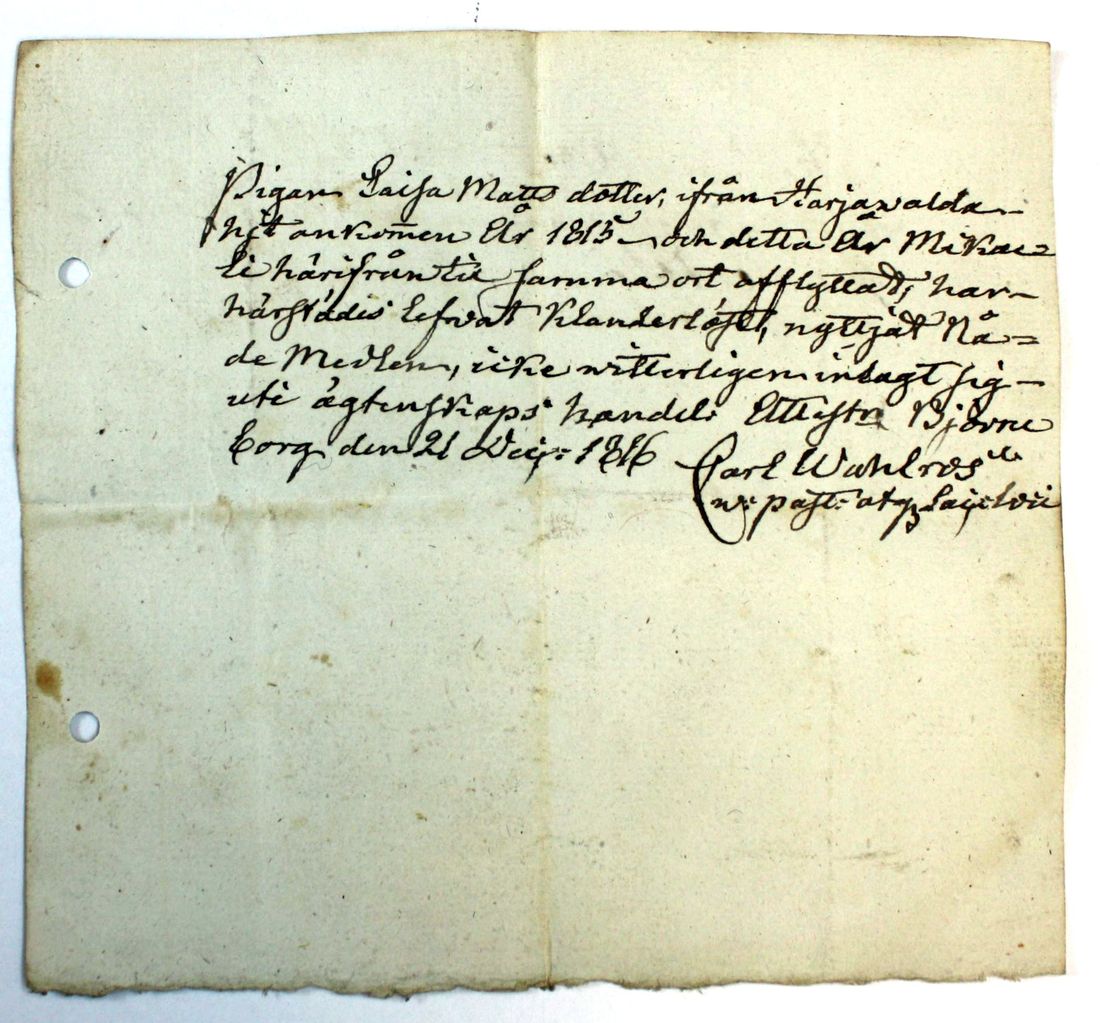 Pigan Caisa Matts dotter, ifrån Harjawalda
hit ankom̄en År 1815 och detta År Mikae=
li härifrån til samma ort afflyttad; har
härstädes lefwat Klanderlöst, nyttjat Nå=
de Medlen, icke witterligen inlagt sig
uti ägtenskaps handel. Attestr Björne
borg den 21 Decj: 1816 Carl Wahlroos